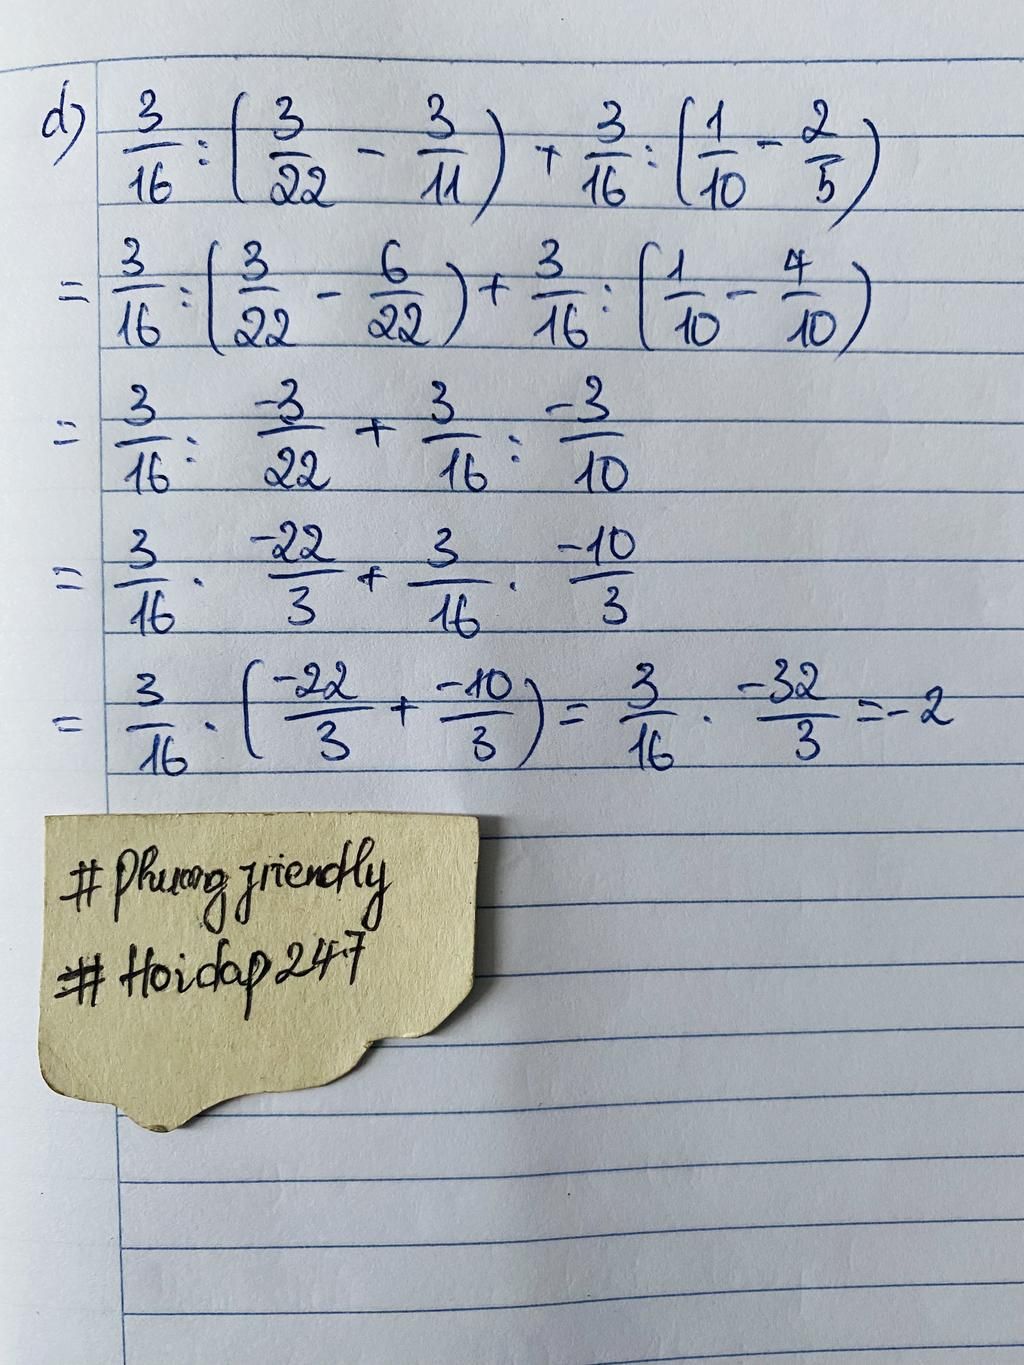 d) 3/16 : (3/22 - 3/11) + 3/16 : (1/10 - 2/5)
= 3/16 : (3/22 - 6/22) + 3/16 : (1/10 - 4/10)
= 3/16 : -3/22 + 3/16 : -3/10
= 3/16 . -22/3 + 3/16 . -10/3
= 3/16 . (-22/3 + -10/3) = 3/16 . -32/3 = -2
# Phuong friendly
# Hoidap247